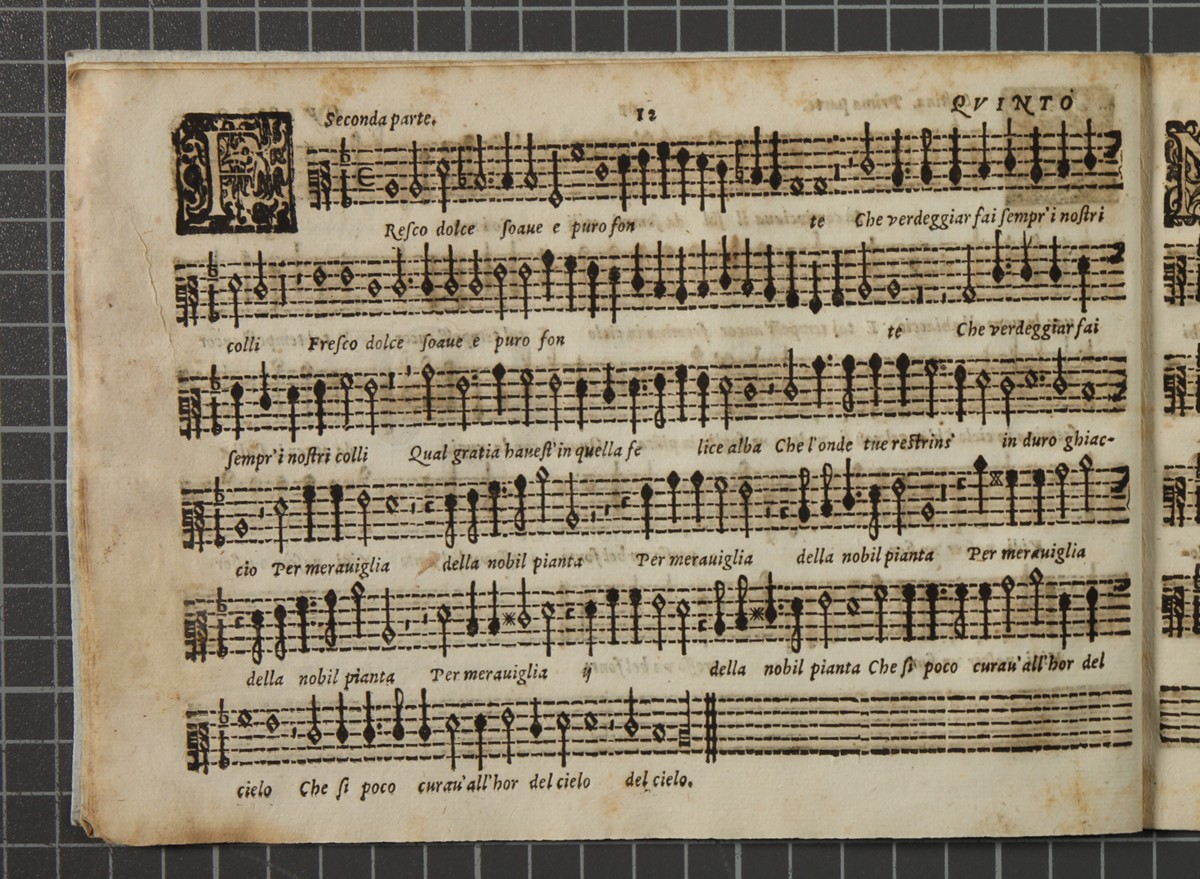 Seconda parte. 12 QVINTO
FResco dolce ſoaue e puro fon te Che verdeggiar fai ſempr'i noſtri
colli Freſco dolce ſoaue e puro fon te Che verdeggiar fai
ſempr'i noſtri colli Qual gratia haueſt'in quella fe lice alba Che l'onde tue reſtrins' in duro ghiac-
cio Per merauiglia della nobil pianta Per merauiglia della nobil pianta Per merauiglia
della nobil pianta Per merauiglia ij della nobil pianta Che ſi poco curau'all'hor del
cielo Che ſi poco curau'all'hor del cielo del cielo.